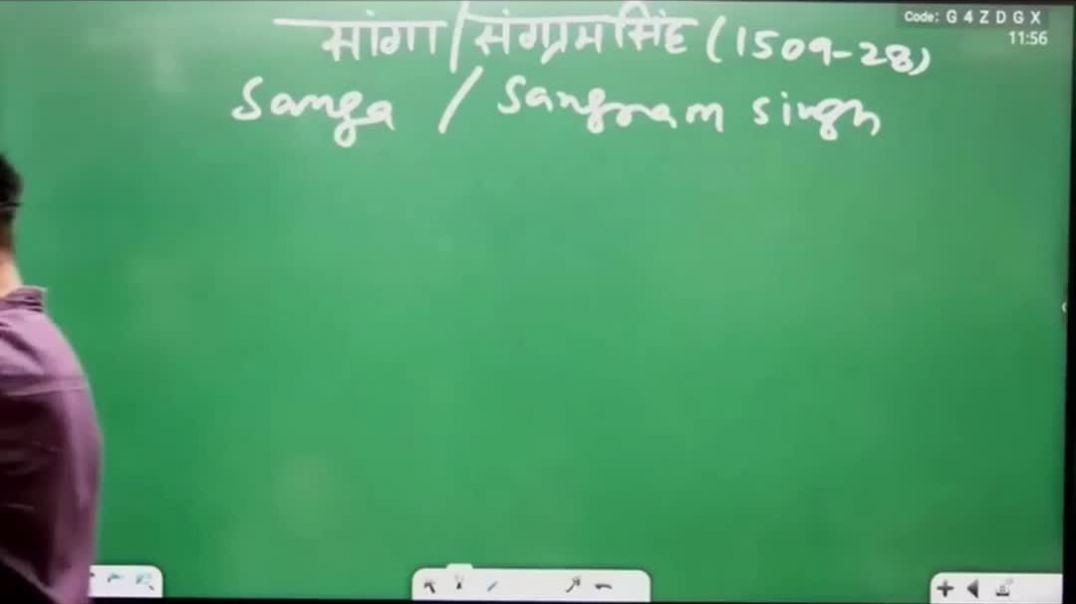 Code: G 4 Z D G X
11:56
सांगा/संग्रामसिंह (1509-28)
Sanga / Sangram singh